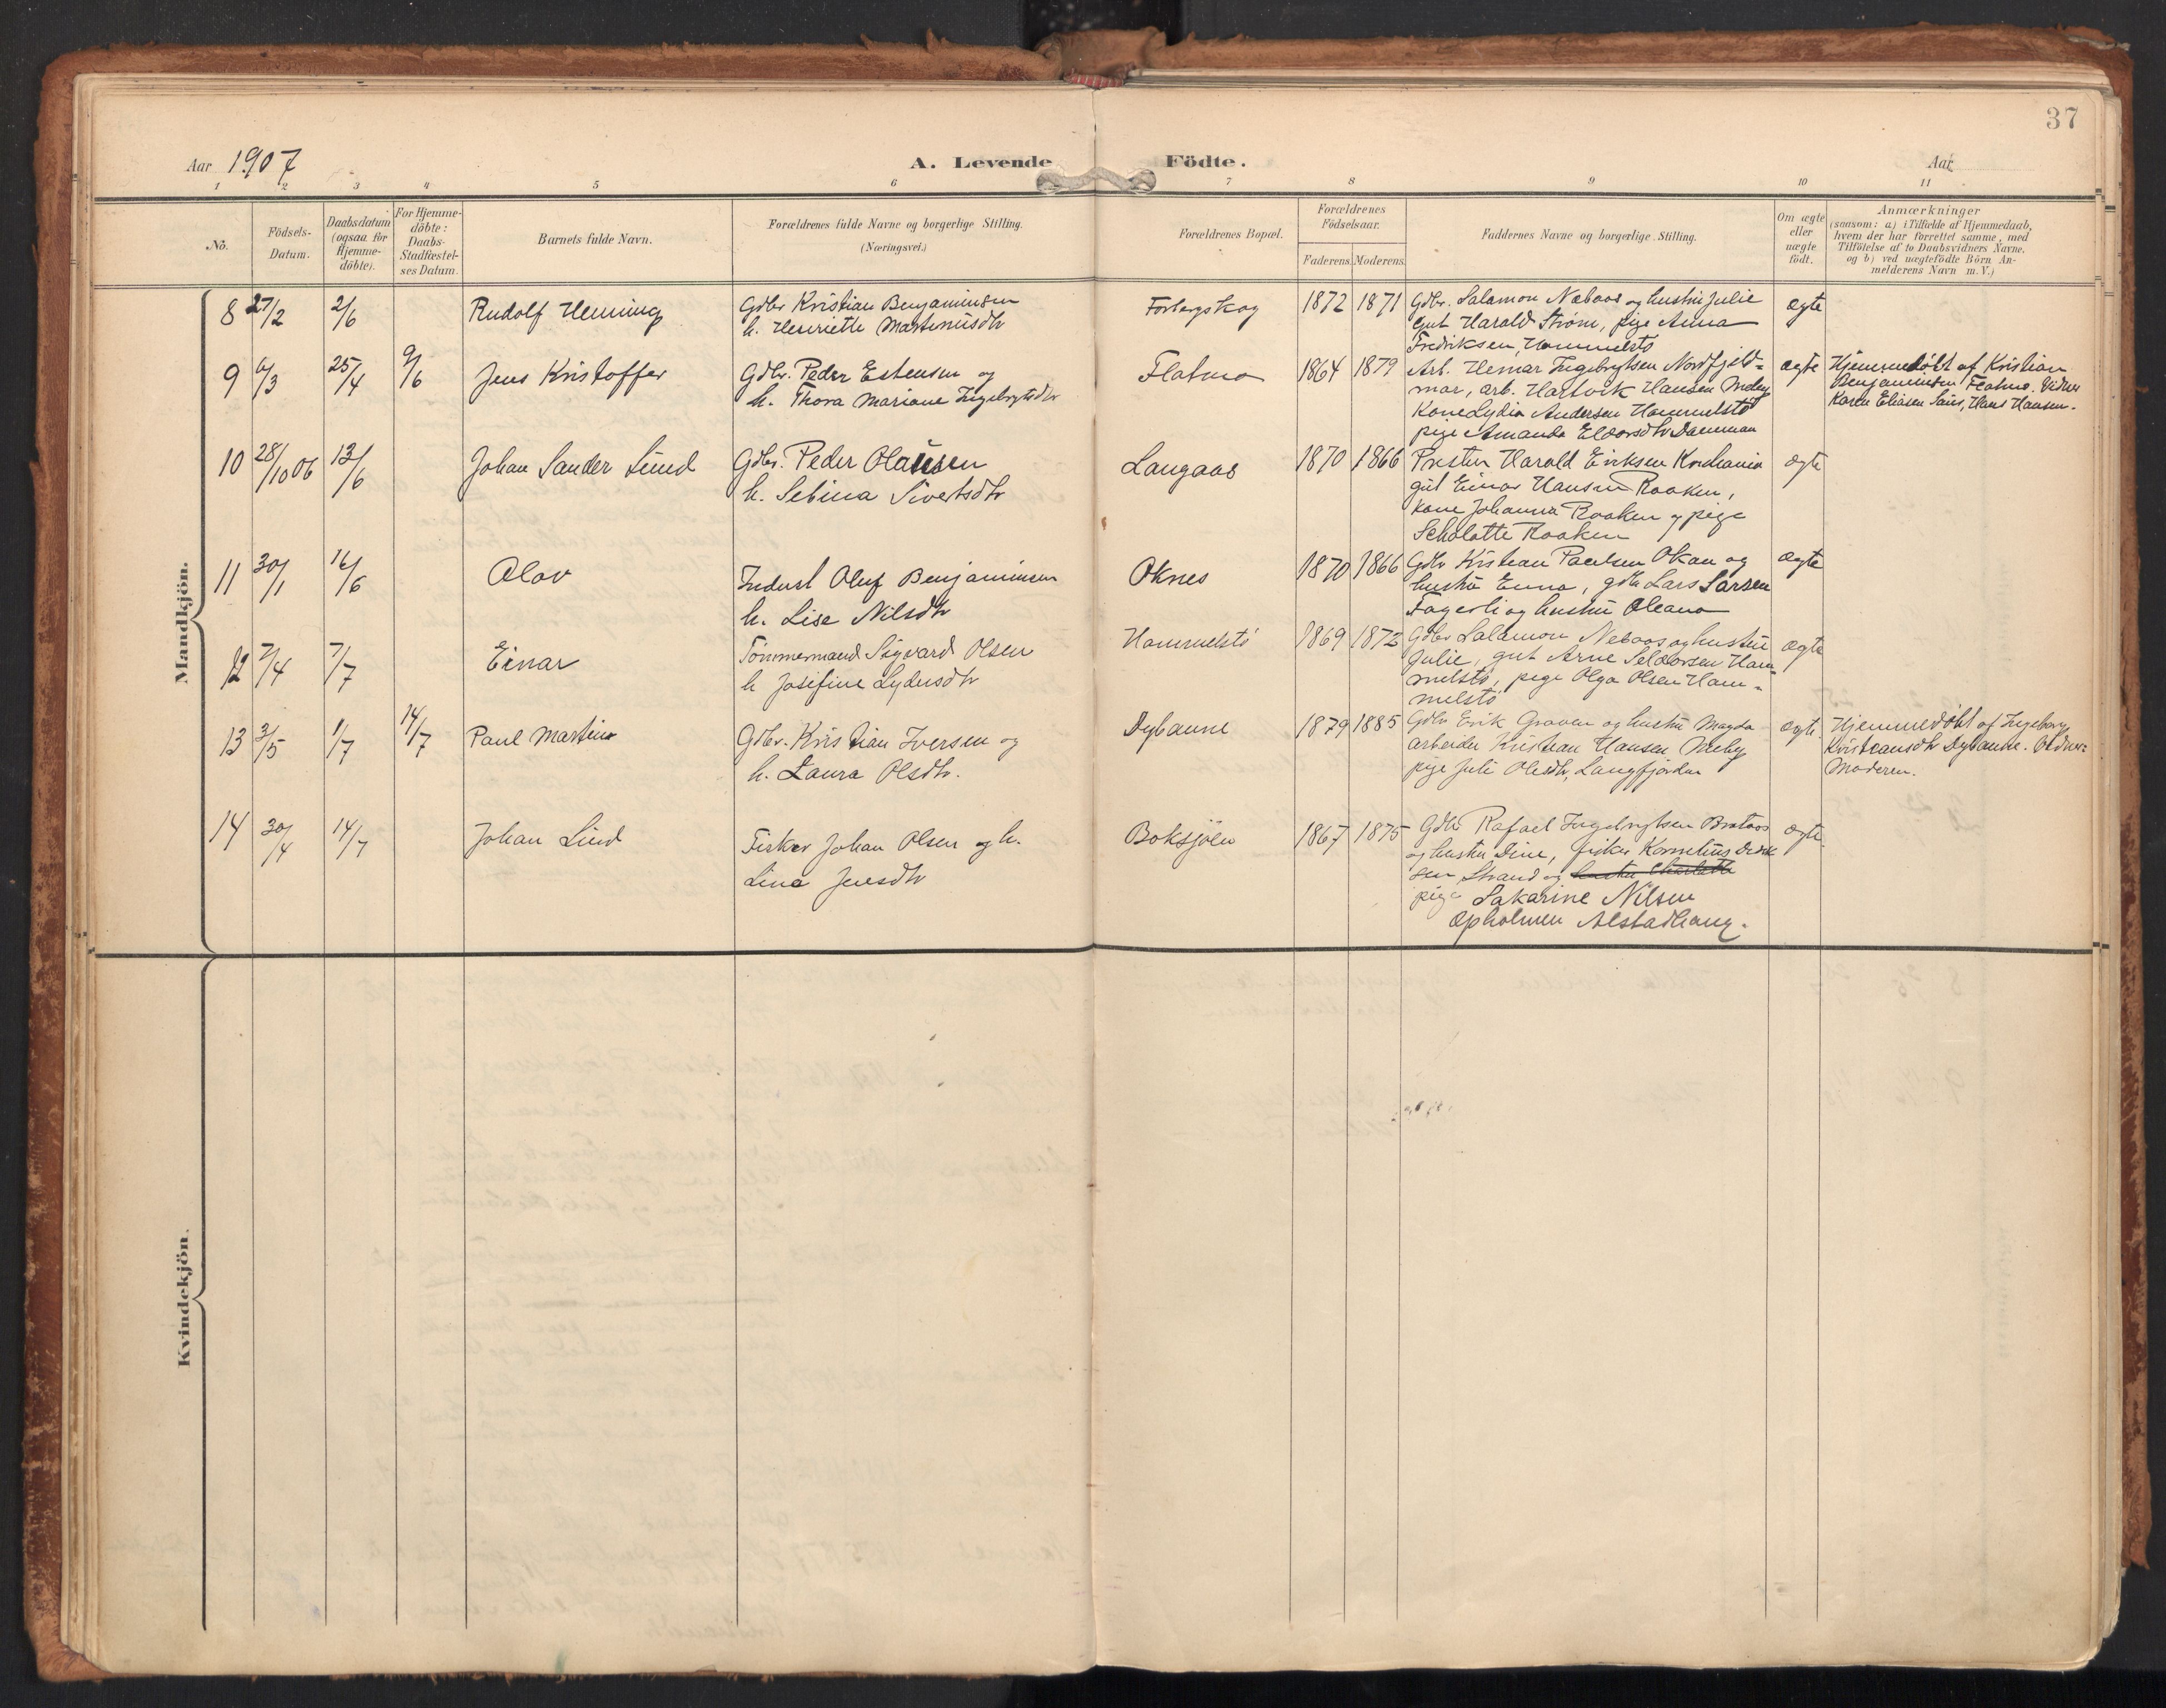 37
Aar 1907 A. Levende Födte. Aar
1 2 3 4 5 6 7 8 9 10 11
No. Födsels-Datum. Daabsdatum (ogsaa for Hjemme-döbte). For Hjemme-döbte: Daabs-Stadfæstel-ses Datum. Barnets fulde Navn. Forældrenes fulde Navne og borgerlige Stilling. (Næringsvei.) Forældrenes Bopæl. Forældrenes Födselsaar. Faderens. Moderens. Faddernes Navne og borgerlige Stilling. Om ægte eller uægte födt. Anmærkninger (saasom: a) i Tilfælde af Hjemmedaab, hvem der har forrettet samme, med Tilföielse af to Daabsvidners Navne, og b) ved uægtefödte Börn An-melderens Navn m. V.)
Mandkjön.
8 27/2 2/6 Rudolf Henning Gdbr Kristian Benjaminsen
h. Henriette Martinusdtr
Forbergskog 1872 1871 Gdbr. Salamon Næbaas og hustru Julie
gut Harald Strøm, pige Anna
Fredriksen, Hommelstø
ægte
9 6/3 25/4 9/6 Jens Kristoffer Gdbr. Peder Estensen og
h. Thora Mariane Ingebrigtsdtr
Flatmo 1864 1879 Arb. Hemar Ingebrigtsen Nordfjeld-
mar, arb. Hartvik Hansen
Kone Lydia Andersen Hommelstø
pige Amanda
ægte Hjemmedöbt af Kristian
Benjaminsen Flatmo. Vidner
Karen Eliasen Saus, Hans Hansen.
10 28/10 06 13/6 Johan Sander Lund Gdbr. Peder Olausen
h. Sebina Sivertsdtr
Langaas 1870 1866 Presten Harald Eriksen Kristiania
gut Einar Hansen Raaken,
kone Johanna Raaken og pige
Scholatte Raaken
ægte
11 30/1 16/6 Olav Indust Oluf Benjaminsen
h. Lise Nilsdtr
Oknes 1870 1866 Gdbr Kristian Paulsen Okan og
hustru Enna, gdbr Lars Larsen
Fagerli og hustru Oleana
ægte
12 7/4 7/7 Einar Tömmermand Sigvard Olsen
h Josefine Lydersdtr
Hommelstö 1869 1872 Gdbr Salamon Nebaas og hustru
Julie, gut Arne Seldorsen Hom-
melstö, pige Olga Olsen Hom-
melstö
ægte
13 3/5 1/7 14/7 Paul Martin Gdbr. Kristian Iversen og
h. Laura Olsdtr.
Dybaune 1879 1885 Gdbr Erik Graven og hustru Magda
arbeider Kristian Hansen
pige Juli Olsdtr, Langfjorden
ægte. Hjemmedöbt af Ingeborg
Kristiansdtr Dybaune. Vidner:
Moderen.
14 30/4 14/7 Johan Lind Fisker Johan Olsen og h.
Lina Jensdtr
Boksjölen 1867 1875 Gdbr Rafael Ingebrigtsen Brataas
og hustru Dine, fisker Kornelius Didrik
sen Strand og hustru Charlotte
pige Sakarine Nilsen
Opholmen Alstadhaug.
ægte.
Kvindekjön.